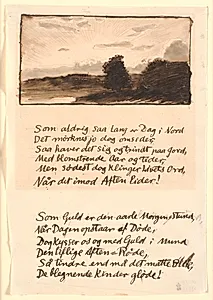 Som aldrig saa lang er Dag i Nord
Det mörknes jo dog omsider,
Saa haver det sig og trindt paa Jord,
Med blomstrende Aar og tider,
Men södest dog klinger Livets Ord,
Når det imod Aften lider!
Som Guld er den aarle Morgenstund,
Når Dagen opstaar af Döde,
Dog kysser os og med Guld i Mund
Den liflige Aften-Röde,
Så tindre end må det matte
De blegnende Kinder glöde!